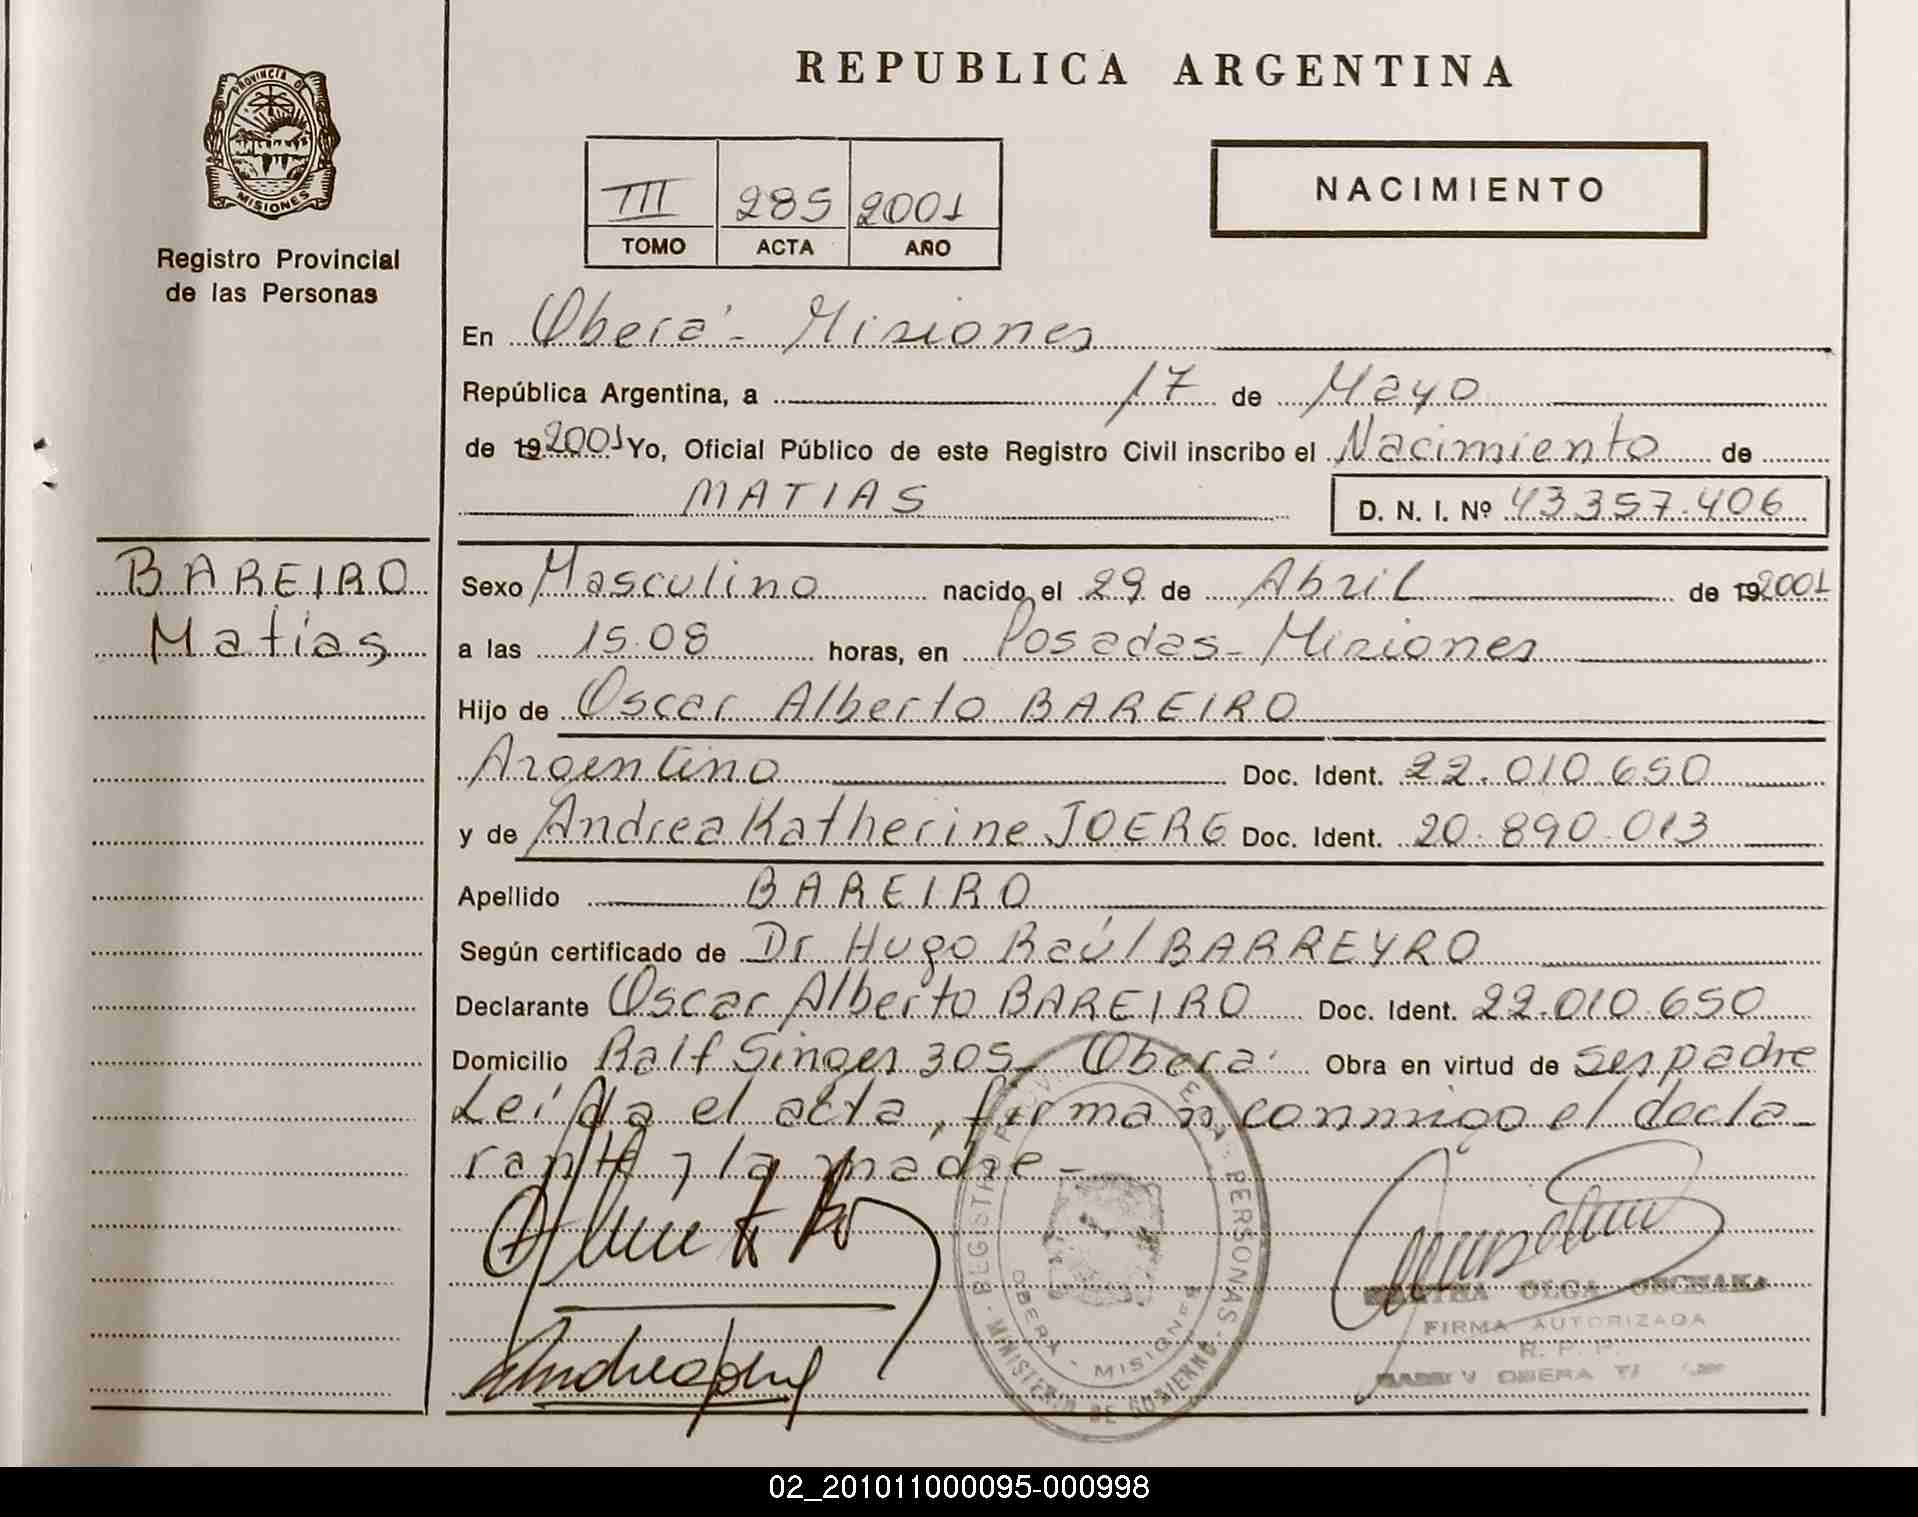 REPUBLICA ARGENTINA
PROVINCIA D
MISIONES
Registro Provincial
de las Personas
III 285 2001
TOMO ACTA AÑO
NACIMIENTO
En Oberá - Misiones
República Argentina, a 17 de Mayo
de 19 2001 Yo, Oficial Público de este Registro Civil inscribo el Nacimiento de
MATIAS D. N. I. Nº 43.357.406
BAREIRO
Matías
Sexo Masculino nacido el 29 de Abril de 19 2001
a las 15.08 horas, en Posadas - Misiones
Hijo de Oscar Alberto BAREIRO
Argentino Doc. Ident. 22.010.650
y de Andrea Katherine JOERG Doc. Ident. 20.890.013
Apellido BAREIRO
Según certificado de Dr Hugo Raúl BARREYRO
Declarante Oscar Alberto BAREIRO Doc. Ident. 22.010.650
Domicilio Ralf Singer 305 Oberá Obra en virtud de ser padre
Leída el acta, firman conmigo el decla-
rante y la madre -
PERSONAS
MINISTERIO DE GOBIERNO
OBERA - MISIONES
OLGA
FIRMA AUTORIZADA
R. P. P.
OBERA
02_201011000095-000998